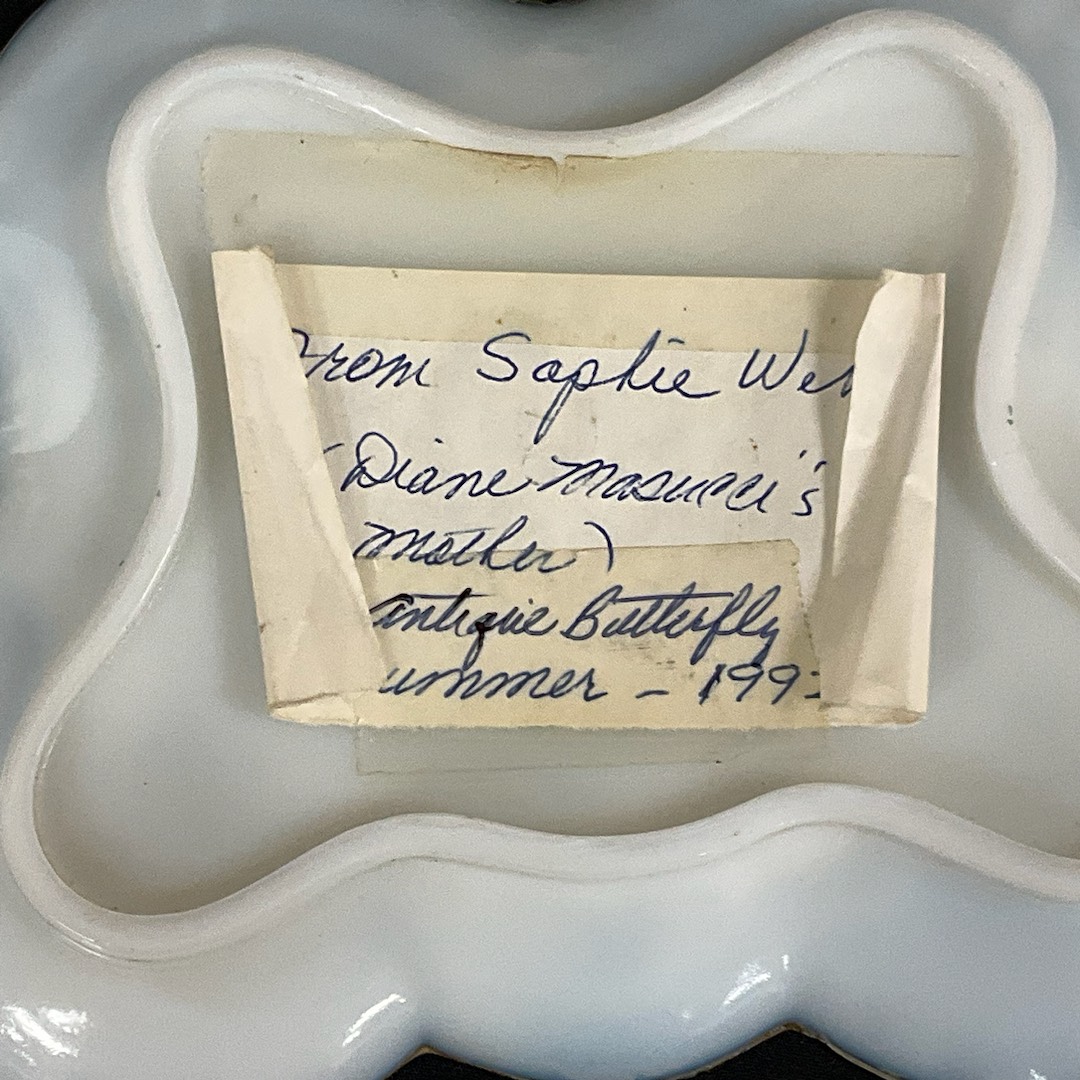 From Sophie
(Diane Masucci's
Mother)
Antique Butterfly
ummer - 199